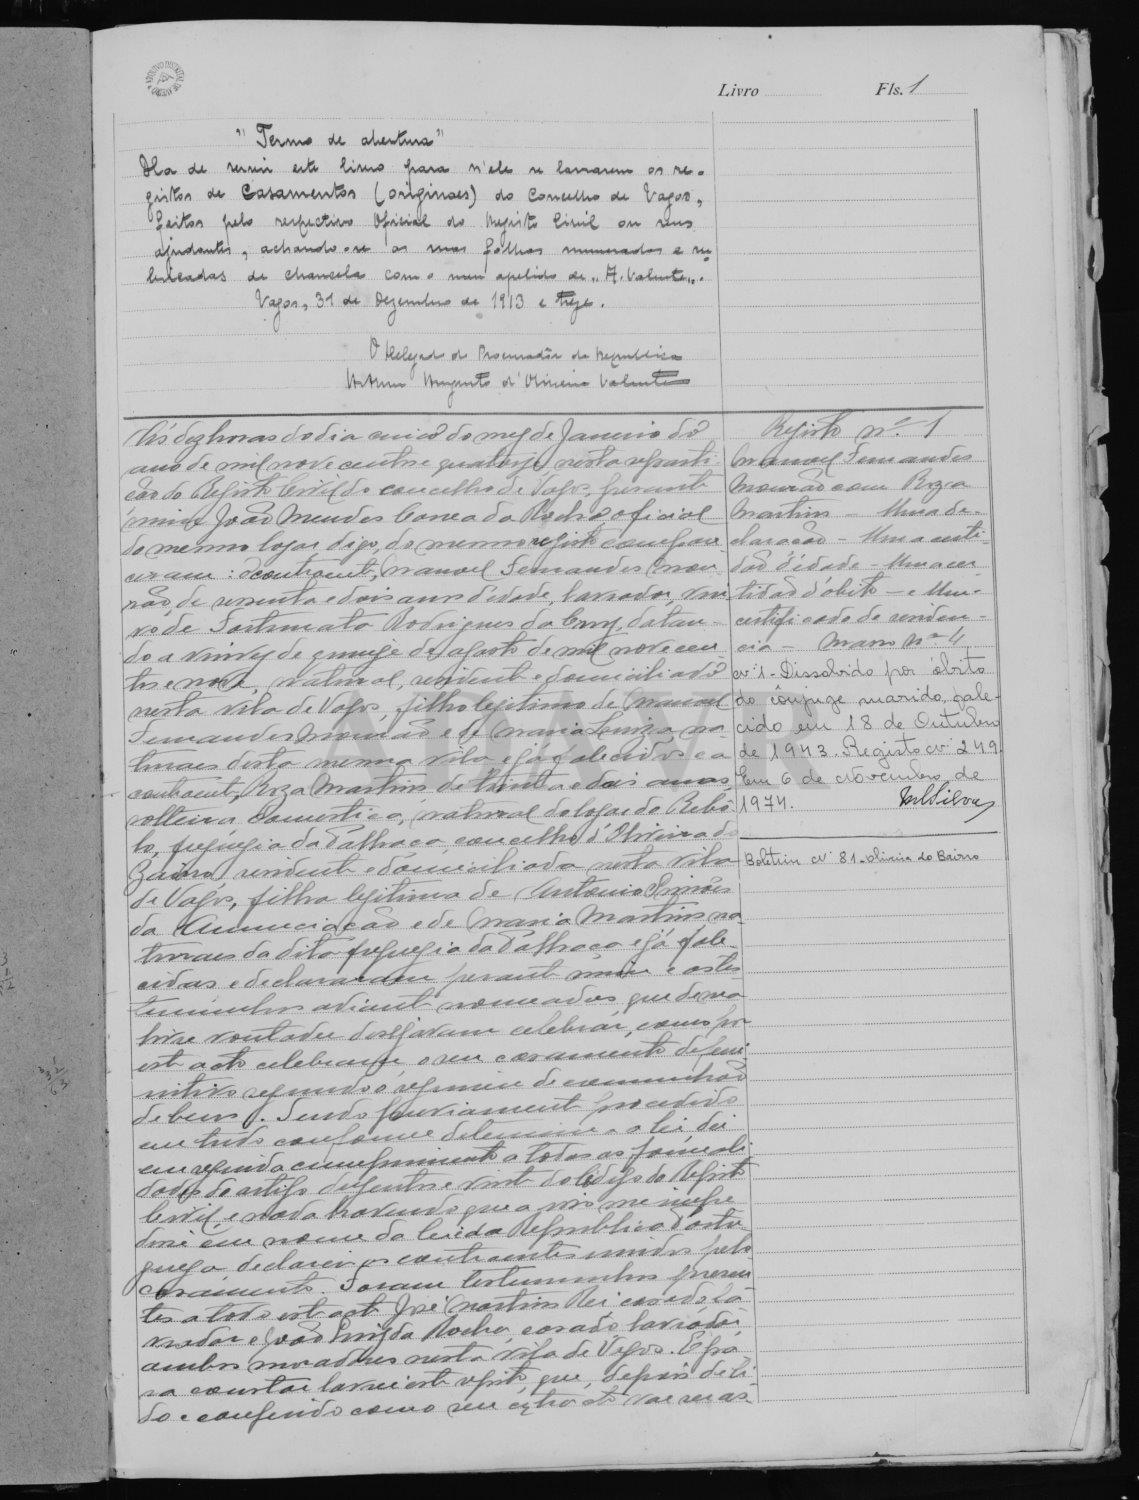 Livro Fls. 1
"Termo de abertura"
Ha de servir este livro para n'ele se lavrarem os re-
gistos de Casamentos (originaes) do Concelho de Vagos,
feitos pelo respectivo Oficial do Registo Civil ou seus
ajudantes, achando-se as suas folhas numeradas e ru-
bricadas de chancela com o meu apelido de "A. Valente".
Vagos, 31 de Dezembro de 1913 e treze.
O Delegado do Procurador da Republica
Augusto d'Oliveira Valente
Ás dez horas do dia cinco do mez de Janeiro do
ano de mil nove centos e quatorze, nesta reparti-
ção do Registo Civil do concelho de Vagos, perante
mim João Mendes Correa da Rocha, oficial
do mesmo logar, digo, do mesmo registo compare-
ceram: o contraente, Manoel Fernandes Mou-
rão, de sessenta e dois anos d'edade, lavrador, viu-
vo de Fortunata Rodrigues da Cruz, datan-
do a viuvez de quinze de agosto de mil nove cen-
tos e nove, natural, residente e domiciliado
nesta vila de Vagos, filho legitimo de Manoel
Fernandes Mourão e de Maria Luiza, na
turaes desta mesma vila e já falecidos e a
contraente, Roza Martins de trinta e dois anos,
solteira domestica, natural do logar do Rebo-
lo, freguezia da Palhaça, concelho d'Oliveira do
Bairro, residente e domiciliada nesta vila
de Vagos, filha legitima de Antonio Simões
da Anunciação e de Maria Martins na
turaes da dita freguezia da Palhaça e já fale-
cidos e declararam perante mim e as tes-
temunhas adiante nomeadas que de sua
livre vontade desejavam celebrar, como por
este acto celebram, o seu casamento defini-
nitivo segundo o regimen de comunhão
de bens. Tendo previamente procedido
em tudo conforme determina a lei dei
em seguida cumprimento a todas as formali
dades do artigo duzentos e vinte do Codigo do Registo
Civil e nada havendo que a isso me impe
disse em nome da lei e da Republica Portu-
gueza declarei os contraentes unidos pelo
casamento. Foram testemunhas presen
tes a todo este acto José Martins Rei, casado la
vrador e João Luiz da Rocha, casado lavrador
ambos moradores nesta vila de Vagos. E pa
ra constar lavrei este registo, que, depois de li-
do e conferido com o seu extrato vae ser as-
Registo nº 1
Manoel Fernandes
Mourão com Roza
Martins - Uma de-
claração - Uma certi-
dão d'edade - Uma cer
tidão d'obito - e Um
certificado de residen-
cia - Maço nº 4
Nº 1 - Dissolvido por óbito
do cônjuge marido, fale-
cido em 18 de Outubro
de 1943. Registo nº 249.
Em 6 de Novembro de
1974.
Boletim nº 81 - Oliveira do Bairro